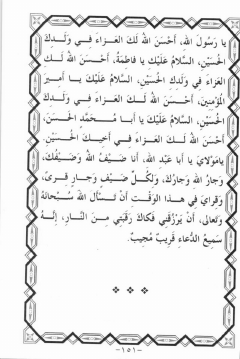 يا رَسُولَ اللهِ، أَحْسَنَ اللهُ لَكَ العَزاءَ في وَلَدِكَ
الحُسَيْنِ، السَّلامُ عَلَيْكِ يا فاطِمَةُ، أَحْسَنَ اللهُ لَكِ
العَزاءَ في وَلَدِكِ الحُسَيْنِ، السَّلامُ عَلَيْكَ يا أَميرَ
المُؤمِنينَ، أَحْسَنَ اللهُ لَكَ العَزاءَ في وَلَدِكَ
الحُسَيْنِ، السَّلامُ عَلَيْكَ يا أَبا مُحَمَّدٍ الحَسَنَ،
أَحْسَنَ اللهُ لَكَ العَزاءَ في أَخيكَ الحُسَيْنِ.
يامَوْلايَ يا أَبا عَبْدِ اللهِ، أَنا ضَيْفُ اللهِ وَضَيْفُكَ،
وَجارُ اللهِ وَجارُكَ، وَلِكُلِّ ضَيْفٍ وَجارٍ قِرىً،
وَقِرايَ في هذا الوَقْتِ أَنْ تَسْأَلَ اللهَ سُبْحانَهُ
وَتَعالى، أَنْ يَرْزُقَني فَكاكَ رَقَبَتي مِنَ النّارِ، إِنَّهُ
سَميعُ الدُّعاءِ قَريبٌ مُجيبٌ.
-١٥١-